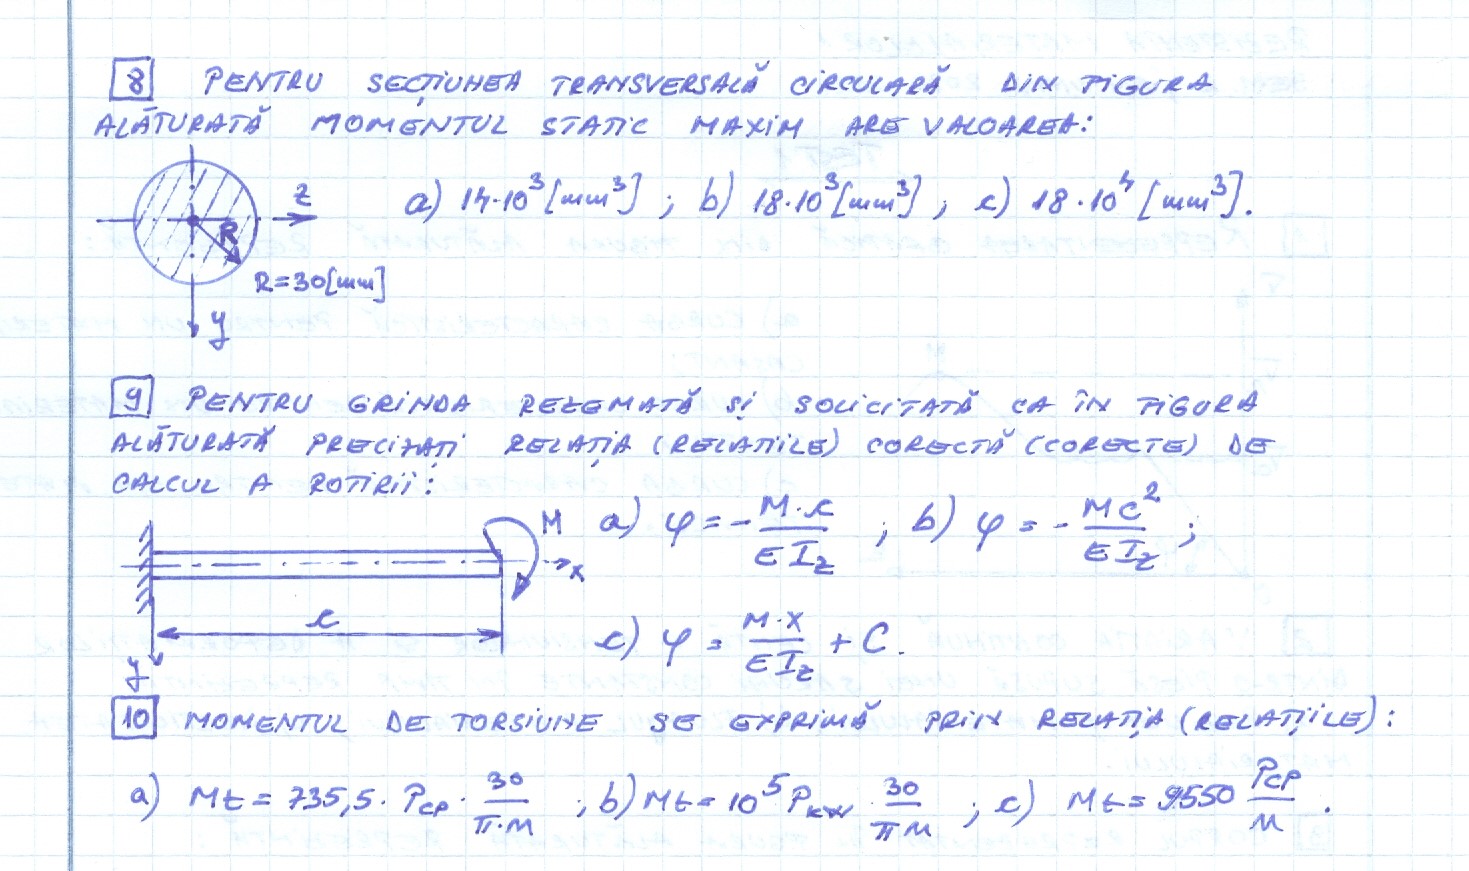 8 PENTRU SECȚIUNEA TRANSVERSALĂ CIRCULARĂ DIN FIGURA
ALĂTURATĂ MOMENTUL STATIC MAXIM ARE VALOAREA:
a) 14·10³ [mm³] ; b) 18·10³ [mm³] ; c) 18·10⁴ [mm³].
z
R
R=30[mm]
y
9 PENTRU GRINDA REZEMATĂ ȘI SOLICITATĂ CA ÎN FIGURA
ALĂTURATĂ PRECIZAȚI RELAȚIA (RELATIILE) CORECTĂ (CORECTE) DE
CALCUL A ROTIRII:
M a) φ = - M·l / E Iz ; b) φ = - Ml² / E Iz ;
x
l
c) φ = M·x / E Iz + C.
y
10 MOMENTUL DE TORSIUNE SE EXPRIMĂ PRIN RELAȚIA (RELAȚIILE):
a) Mt = 735,5 · PCP · 30 / π·n ; b) Mt = 10⁵ Pkw · 30 / π n ; c) Mt = 9550 PCP / n .